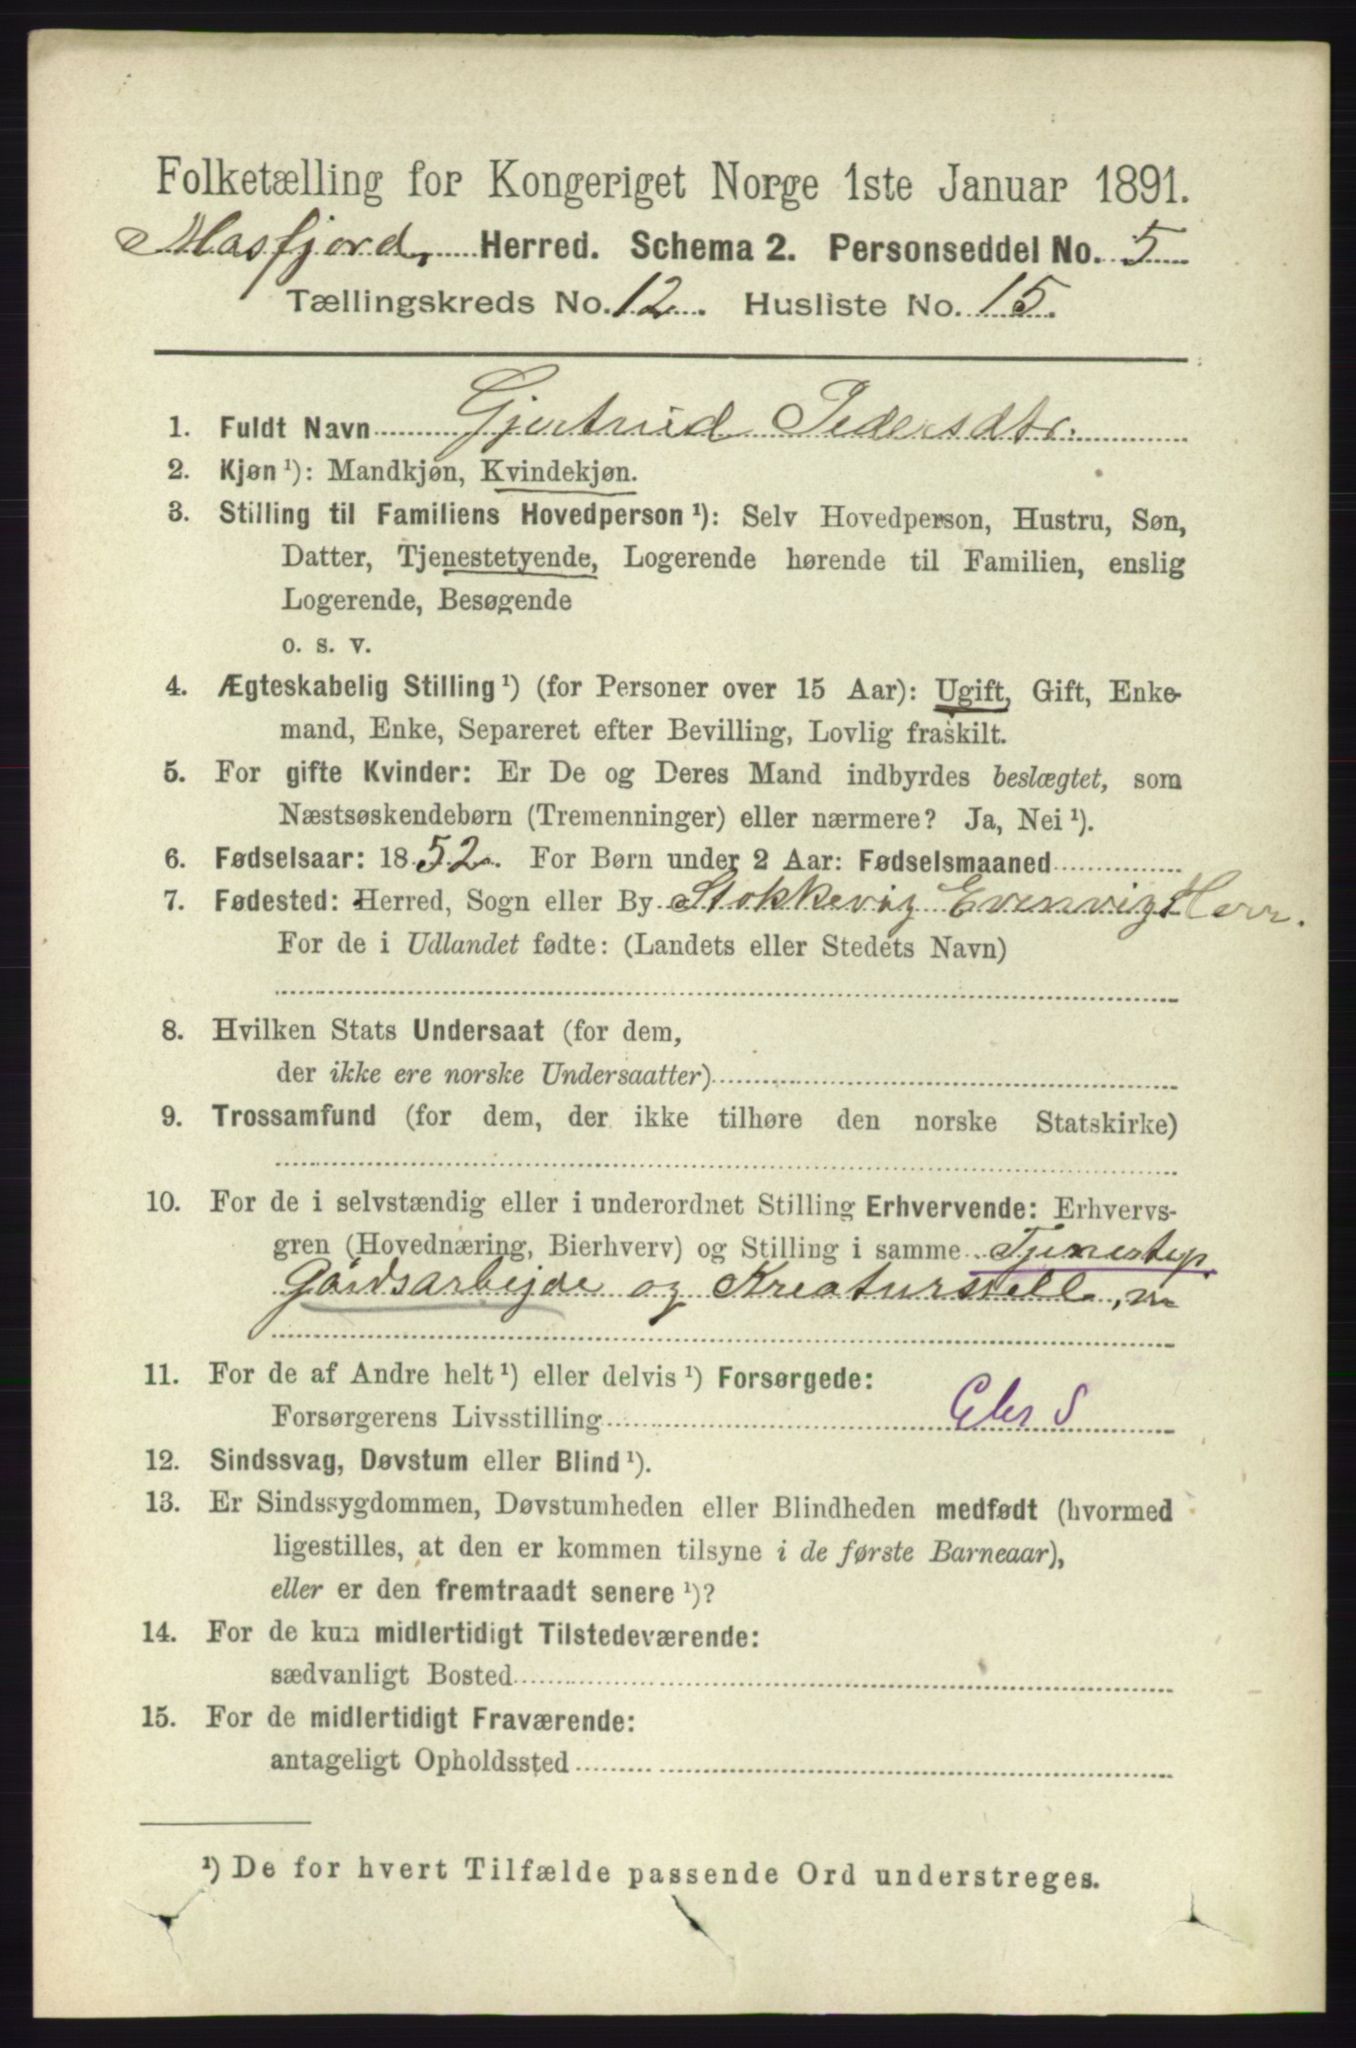 Folketælling for Kongeriget Norge 1ste Januar 1891.
Masfjord, Herred. Schema 2. Personseddel No. 5
Tællingskreds No. 12. Husliste No. 15.
1. Fuldt Navn Gjertrud Pedersdtr.
2. Kjøn ¹): Mandkjøn, Kvindekjøn.
3. Stilling til Familiens Hovedperson ¹): Selv Hovedperson, Hustru, Søn,
Datter, Tjenestetyende, Logerende hørende til Familien, enslig
Logerende, Besøgende
o. s. v.
4. Ægteskabelig Stilling ¹) (for Personer over 15 Aar): Ugift, Gift, Enke-
mand, Enke, Separeret efter Bevilling, Lovlig fraskilt.
5. For gifte Kvinder: Er De og Deres Mand indbyrdes beslægtet, som
Næstsøskendebørn (Tremenninger) eller nærmere? Ja, Nei ¹).
6. Fødselsaar: 1852. For Børn under 2 Aar: Fødselsmaaned
7. Fødested: Herred, Sogn eller By Stokkevig Evenvigs Herr.
For de i Udlandet fødte: (Landets eller Stedets Navn)
8. Hvilken Stats Undersaat (for dem,
der ikke ere norske Undersaatter)
9. Trossamfund (for dem, der ikke tilhøre den norske Statskirke)
10. For de i selvstændig eller i underordnet Stilling Erhvervende: Erhvervs-
gren (Hovednæring, Bierhverv) og Stilling i samme Tjenestep.
Gårdsarbejde og Kreaturstell, m
11. For de af Andre helt ¹) eller delvis ¹) Forsørgede:
Forsørgerens Livsstilling
12. Sindssvag, Døvstum eller Blind ¹).
13. Er Sindssygdommen, Døvstumheden eller Blindheden medfødt (hvormed
ligestilles, at den er kommen tilsyne i de første Barneaar),
eller er den fremtraadt senere ¹)?
14. For de kun midlertidigt Tilstedeværende:
sædvanligt Bosted
15. For de midlertidigt Fraværende:
antageligt Opholdssted
¹) De for hvert Tilfælde passende Ord understreges.